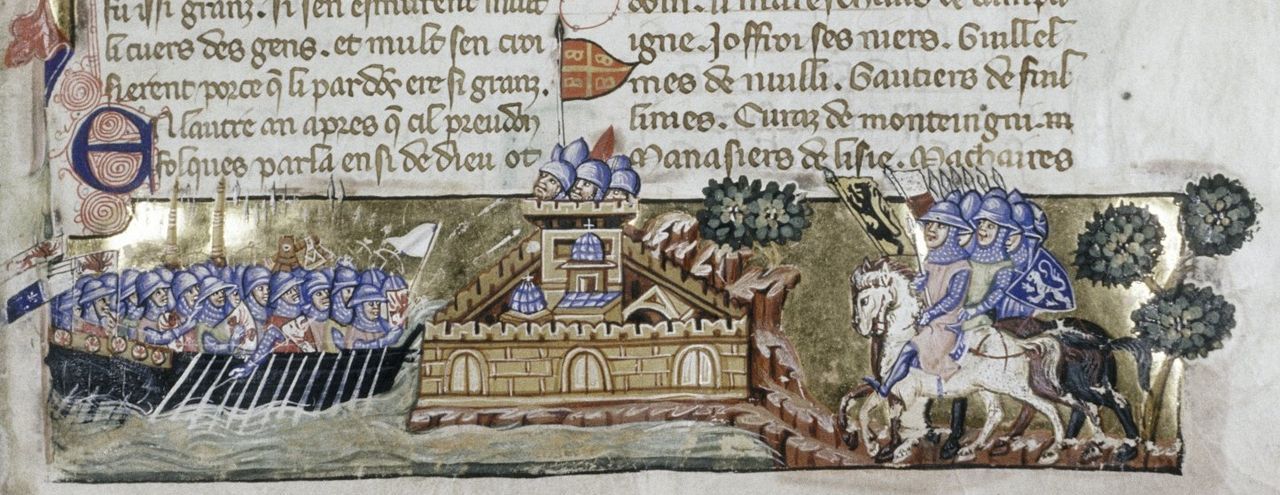 fu issi granz. si sen esmurent mult
li cuers des gens. et mult sen croi
sierent porce q̃ li pardõs ere si granz.
En lautre an apres q̃ cil preudon
folques parla ensi de dieu ot
igne. Joffroi ses niers. Guillel
mes de nuilli. Gautiers de fuil
lines. Euraz de monteingni. m
Manasiers de lisle. Machaires